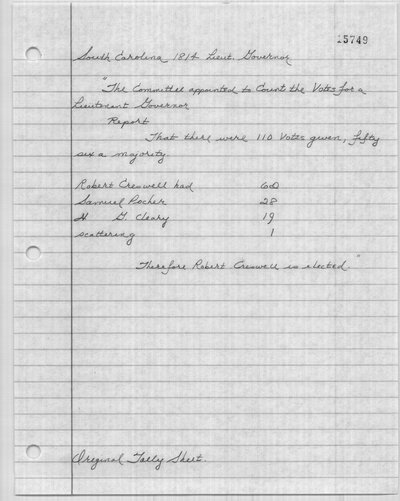 15749
South Carolina 1814 Lieut. Governor
"The Committee appointed to Count the Votes for a
Lieutenant Governor
Report
That there were 110 Votes given, fifty
six a majority.
Robert Creswell had 60
Samuel Rocher 28
N G. Cleary 19
scattering 1
Therefore Robert Creswell is elected."
Original Tally Sheet.